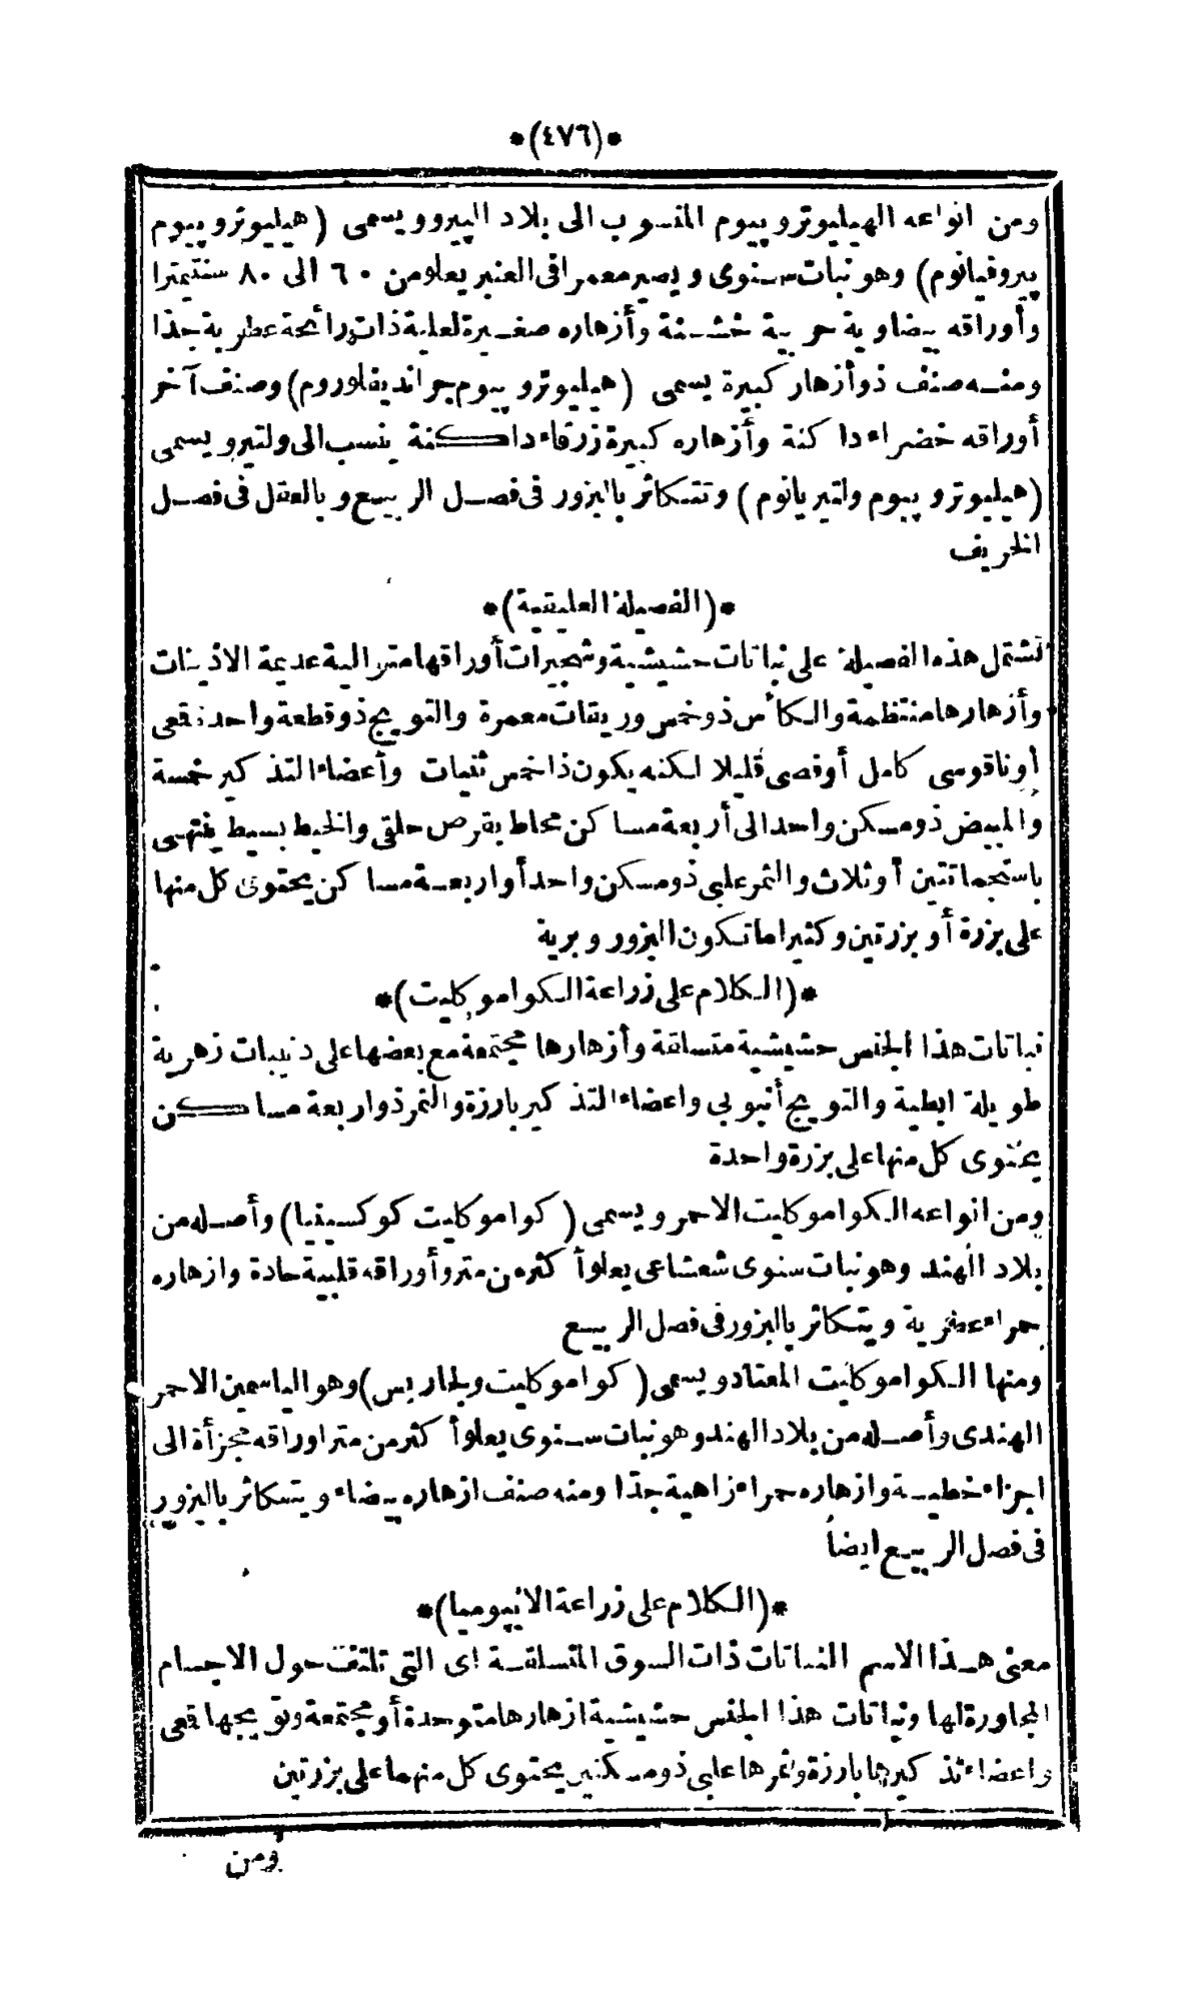 *(٤٧٦)*
ومن انواعه الهيليوتروپيوم المنسوب الى بلاد الپيرو ويسمى (هيليوتروپيوم
پيروفيانوم) وهو نبات سنوى ويصير معمرا فى العنبر يعلو من ٦٠ الى ٨٠ سنتيمترا
وأوراقه بيضاوية حربية خشنة وأزهاره صغيرة لعلية ذات رائحة عطرية جدا
ومنه صنف ذو أزهار كبيرة يسمى (هيليوتروپيوم جرانديفلوروم) وصنف آخر
أوراقه خضراء داكنة وأزهاره كبيرة زرقاء داكنة ينسب الى ولتير ويسمى
(هيليوتروپيوم ولتيريانوم) وتتكاثر بالبزور فى فصل الربيع وبالعقل فى فصل
الخريف
*(الفصيلة العليقية)*
تشتمل هذه الفصيلة على نباتات حشيشية وشجيرات أوراقها متوالية عديمة الاذينات
وأزهارها منتظمة والكأس ذو خمس وريقات معمرة والتويج ذو قطعة واحدة قعى
أوناقوسى كامل أوفصى قليلا لكنه يكون ذا خمس ثنيات وأعضاء التذكير خمسة
والمبيض ذو مسكن واحد الى أربعة مساكن محاط بقرص حلقى والخيط بسيط ينتهى
باستجماتتين أو ثلاث والثمر علبى ذو مسكن واحد أو اربعة مساكن يحتوى كل منها
على بزرة أو بزرتين وكثيرا ما تكون البزور وبرية
*(الكلام على زراعة الكواموكليت)*
نباتات هذا الجنس حشيشية متسلقة وأزهارها مجتمعة مع بعضها على ذنيبات زهرية
طويلة ابطية والتويج أنبوبى واعضاء التذكير بارزة والثمر ذو اربعة مساكن
يحتوى كل منها على بزرة واحدة
ومن انواعه الكواموكليت الاحمر ويسمى (كواموكليت كوكسينيا) وأصله من
بلاد الهند وهو نبات سنوى شعشاعى يعلو أكثر من متر وأوراقه قلبية حادة وازهاره
حمراء عفرية ويتكاثر بالبزور فى فصل الربيع
ومنها الكواموكليت المعتاد ويسمى (كواموكليت ولجاريس) وهو الياسمين الاحمر
الهندى وأصله من بلاد الهند وهو نبات سنوى يعلو أكثر من متر اوراقه مجزأة الى
اجزاء خطية وازهاره حمراء زاهية جدّا ومنه صنف ازهاره بيضاء ويتكاثر بالبزور
فى فصل الربيع ايضاً
*(الكلام على زراعة الايپوميا)*
معنى هذا الاسم النباتات ذات السوق المتسلقة اى التى تلتف حول الاجسام
المجاورة لها ونباتات هذا الجنس حشيشية ازهارها متوحدة أو مجتمعة وتويجها قعى
واعضاء تذكيرها بارزة وثمرها علبى ذو مسكنين يحتوى كل منهما على بزرتين
ومن